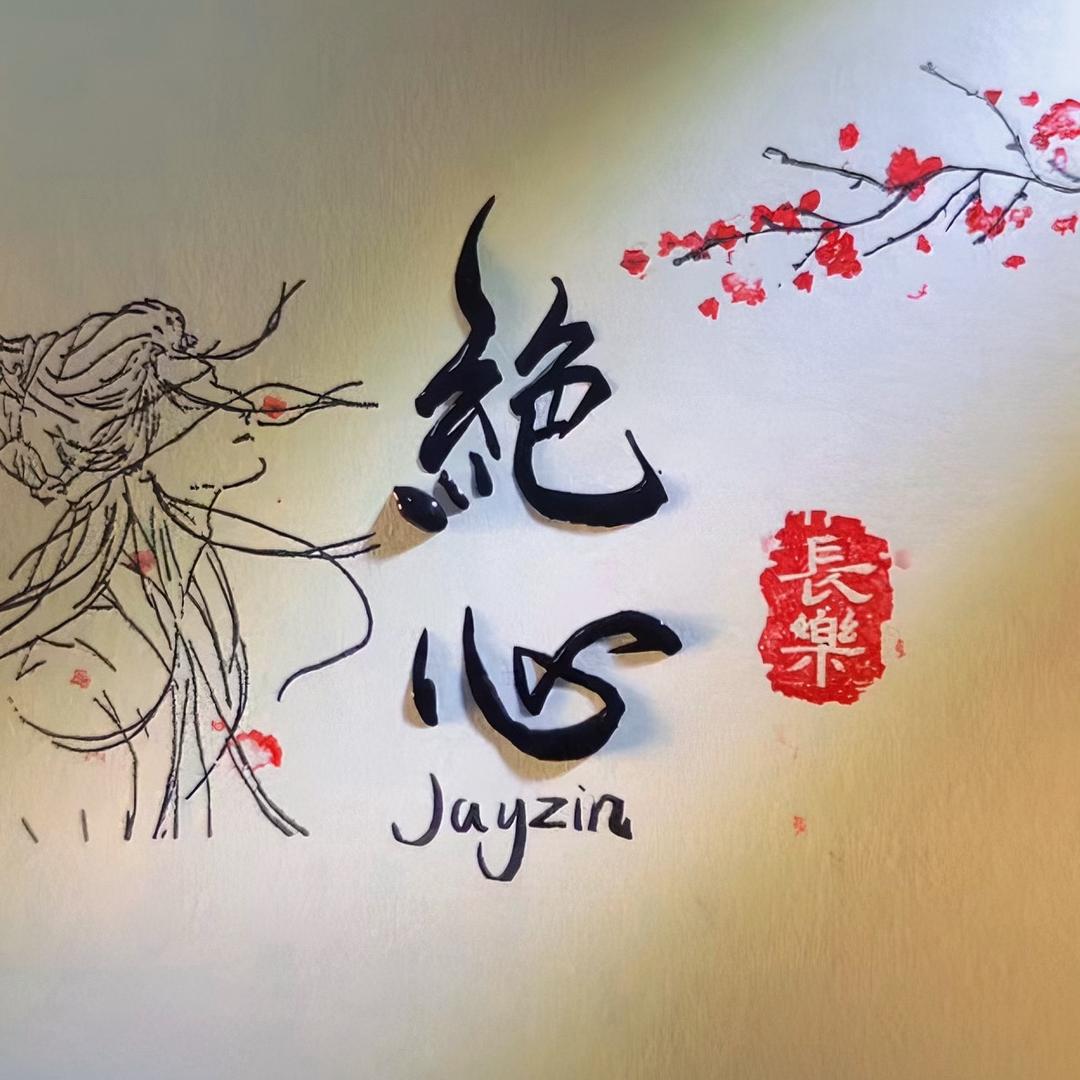 絕
心
Jayzin
長
樂